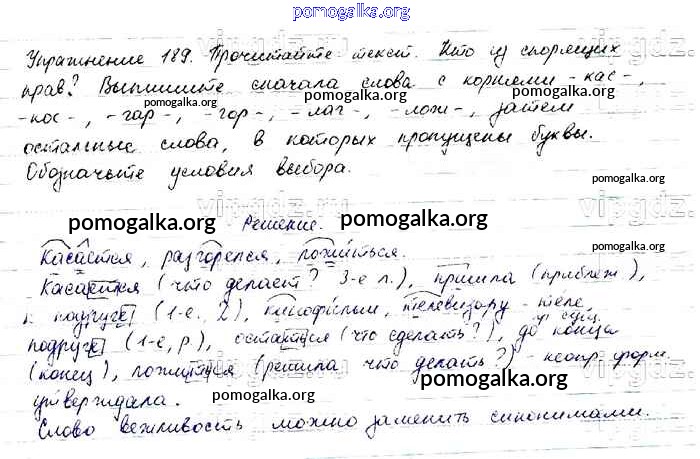 pomogalka.org
Упражнение 189. Прочитайте текст. Кто из спорящих
vipgdz.
прав? Выпишите сначала слова с корнями -кас-,
pomogalka.org
pomogalka.org
-кос-, -гар-, -гор-, -лаг-, -лож-, затем
pomogalka.org
остальные слова, в которых пропущены буквы.
Обозначьте условия выбора.
pomogalka.org
vipgdz.
vipgdz.
pomogalka.org Решение. pomogalka.org
Касается, разгорелся, ложиться.
Касается (что делает? 3-е л.), пришла (приближ.),
pomogalka.org
к подруге (1-е, 2), кинофильм, телевизору - теле
подруге (1-е, р.), остаться (что сделать?), до конца
(конец), ложиться (решила что делать?) - неопр. форм.
pomogalka.org
утверждала.
Слово вежливость можно заменить синонимами.
pomogalka.org